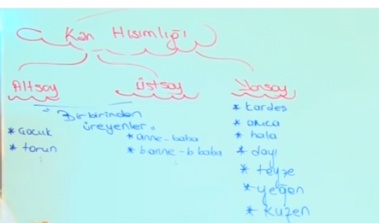 Kan Hısımlığı
Altsoy
Üstsoy
Yansoy
Birbirinden
üreyenler
* Çocuk
* torun
* anne-baba
* b.anne-b.baba
* kardeş
* amca
* hala
* dayı
* teyze
* yeğen
* kuzen